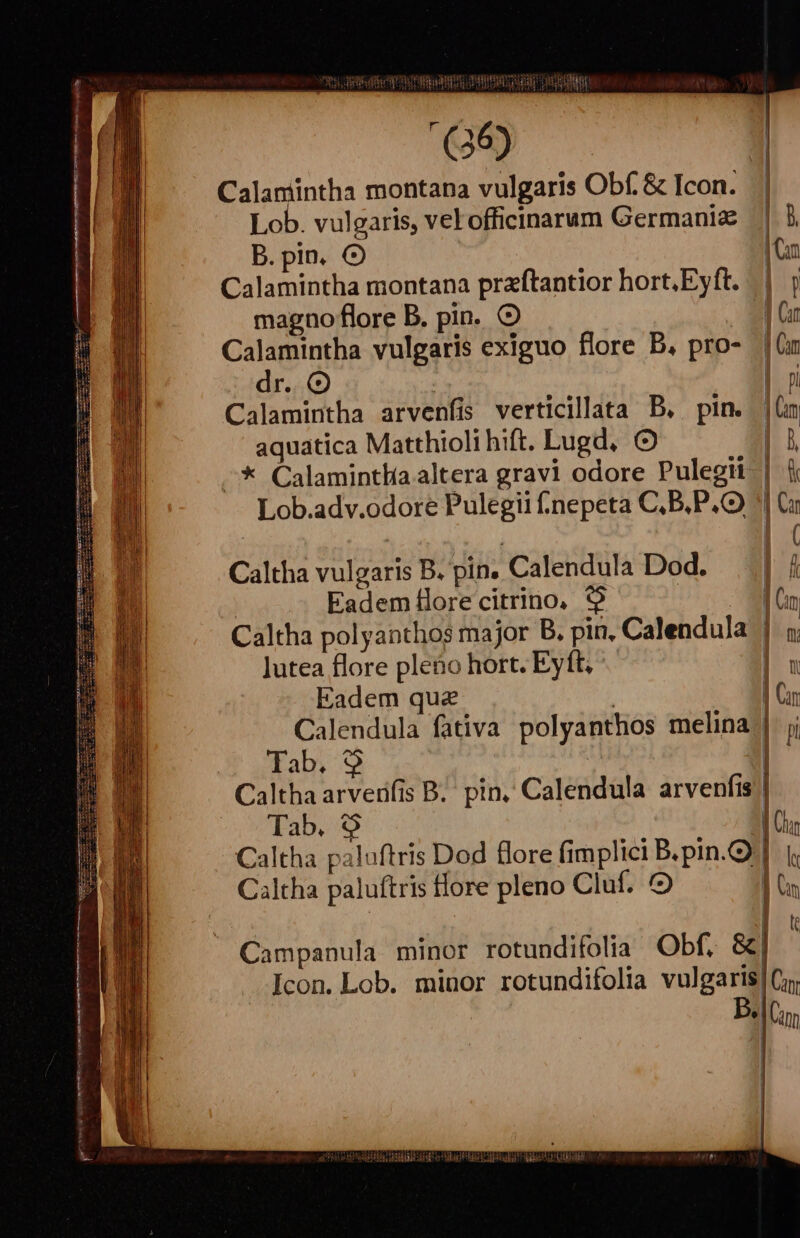 (36)
Calamintha montana vulgaris Obſ. & Icon.
Lob. vulgaris, vel officinarum Germaniæ
B. pin. ☉
Calamintha montana præſtantior hort. Eyſt.
magno flore B. pin. ☉
Calamintha vulgaris exiguo flore B. pro-
dr. ☉
Calamintha arvenſis verticillata B. pin.
aquatica Matthioli hiſt. Lugd. ☉
* Calamintha altera gravi odore Pulegii
Lob. adv. odore Pulegii ſ. nepeta C. B. P. ☉
Caltha vulgaris B. pin. Calendula Dod.
Eadem flore citrino. ♀
Caltha polyanthos major B. pin. Calendula
lutea flore pleno hort. Eyſt.
Eadem quæ
Calendula ſativa polyanthos melina
Tab. ♀
Caltha arvenſis B. pin. Calendula arvenſis
Tab. ♀
Caltha paluſtris Dod flore ſimplici B. pin. ☉
Caltha paluſtris flore pleno Cluſ. ☉
Campanula minor rotundifolia Obſ. &
Icon. Lob. minor rotundifolia vulgaris
B.